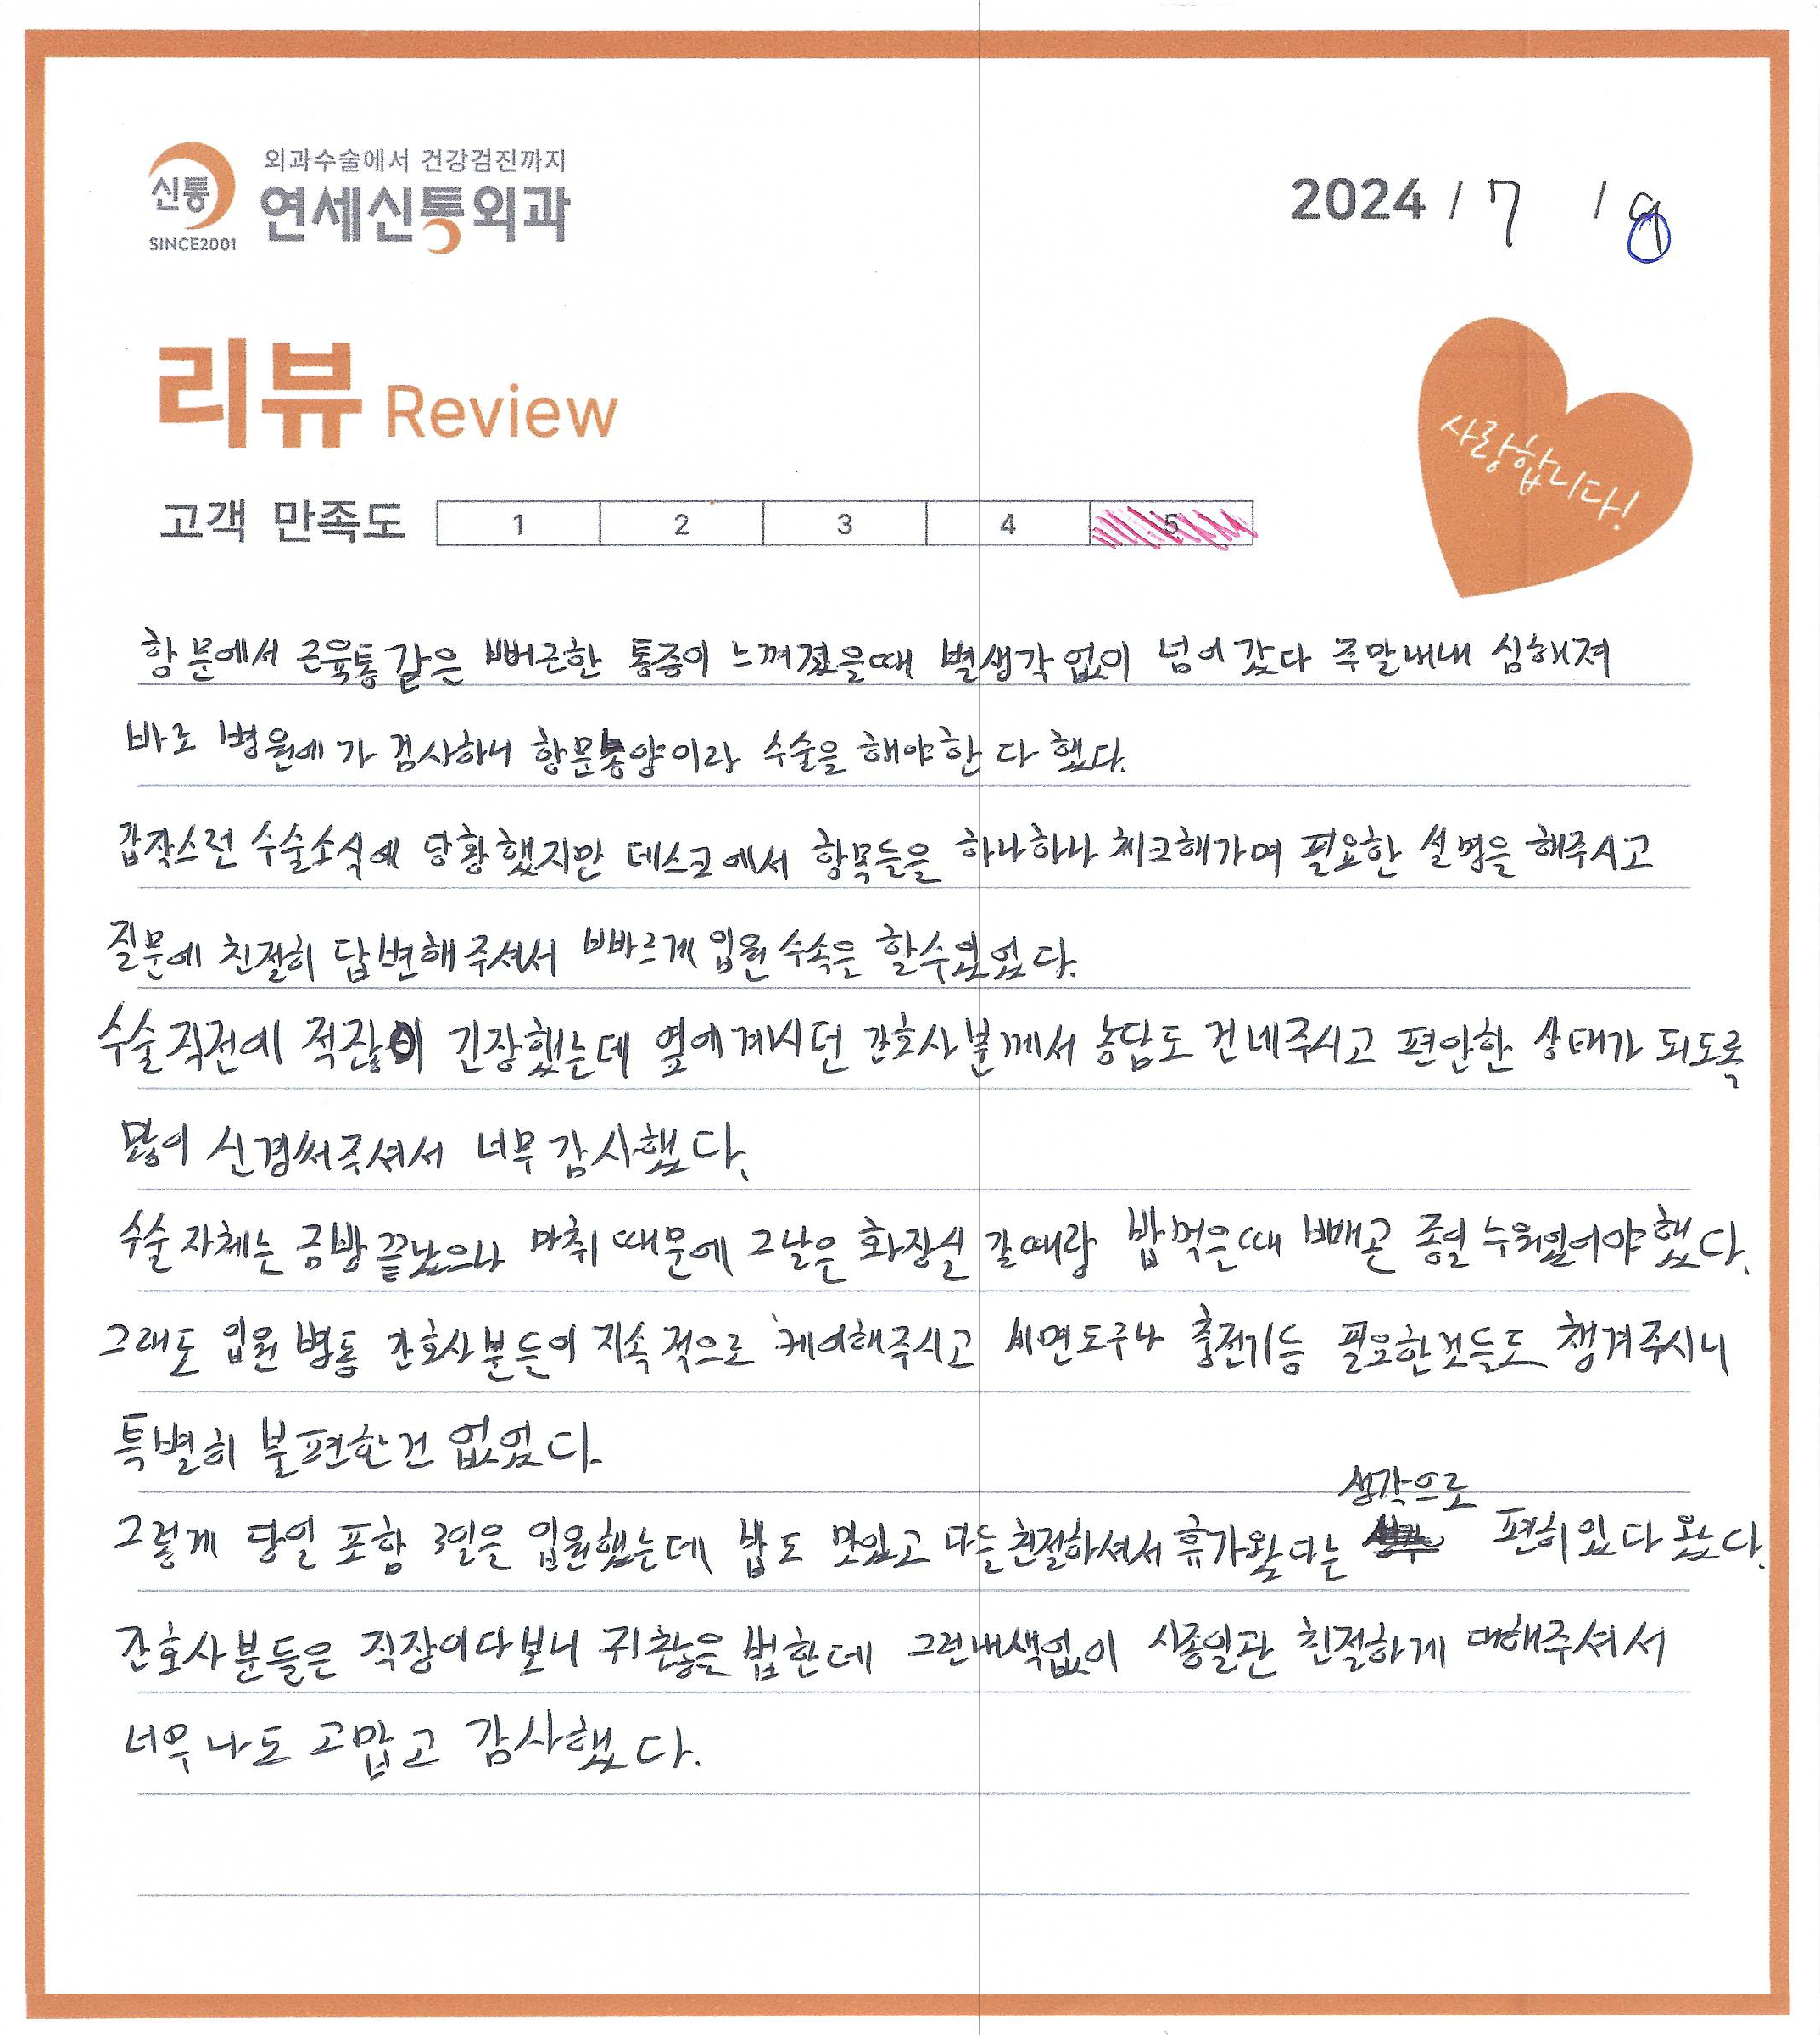 신통
SINCE2001
외과수술에서 건강검진까지
연세신통외과
2024 / 7 / 8
리뷰 Review
사랑합니다!
고객 만족도 1 2 3 4 5
항문에서 근육통같은 뻐근한 통증이 느껴졌을때 별생각없이 넘어갔다 주말내내 심해져
바로 병원에가 검사하니 항문농양이라 수술을 해야한다 했다.
갑작스런 수술소식에 당황했지만 데스크에서 항목들을 하나하나 체크해가며 필요한 설명을 해주시고
질문에 친절히 답변해주셔서 빠르게 입원수속은 할수있었다.
수술직전에 적잖이 긴장했는데 옆에계시던 간호사분께서 농담도 건네주시고 편안한 상태가 되도록
많이 신경써주셔서 너무감사했다.
수술자체는 금방끝났으나 마취때문에 그날은 화장실갈때랑 밥먹은때 빼곤 종일누워있어야했다.
그래도 입원병동 간호사분들이 지속적으로 케어해주시고 세면도구나 충전기등 필요한것들도 챙겨주시니
특별히 불편한건 없었다.
생각으로
그렇게 당일 포함 3일을 입원했는데 밥도 맛있고 다들친절하셔서 휴가왔다는 편히있다왔다.
간호사분들은 직장이다보니 귀찮을법한데 그런내색없이 시종일관 친절하게 대해주셔서
너무나도 고맙고 감사했다.